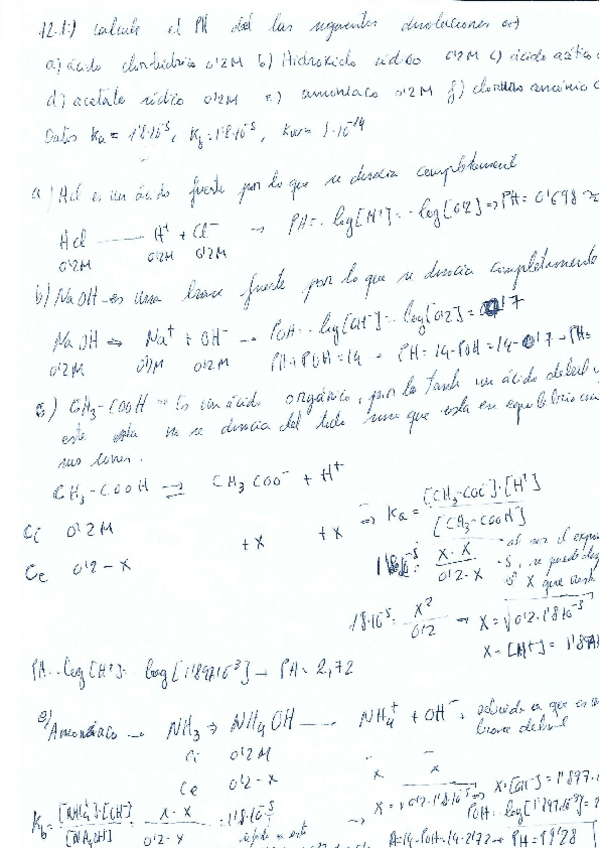 12.1.) calcule el PH de las siguientes disoluciones
a) ácido clorhídrico 0'2M b) Hidróxido sódico 0'2M c) ácido acético
d) acetato sódico 0'2M e) amoníaco 0'2M f) cloruro amónico
Datos Ka = 1'8·10⁻⁵, Kb = 1'8·10⁻⁵, Kw = 1·10⁻¹⁴
a) Hcl es un ácido fuerte por lo que se disocia completament
Hcl —— H⁺ + Cl⁻ → PH = -log[H⁺] = -log[0'2] ⇒ PH = 0'698
0'2M 0'2M 0'2M
b) NaOH → es una base fuerte por lo que se disocia completamente
NaOH ⇒ Na⁺ + OH⁻ → POH = -log[OH⁻] = -log[0'2] = 0'7
0'2M 0'2M 0'2M PH + POH = 14 → PH = 14 - POH = 14 - 0'7 → PH =
c) CH3-COOH → Es un ácido orgánico, por lo tanto un ácido debil y
este no se disocia del todo sino que esta en equilibrio con
sus iones.
CH3-COOH ⇌ CH3COO⁻ + H⁺
⇒ Ka = [CH3-COO⁻]·[H⁺] / [CH3-COOH]
Ci 0'2M
+x +x
Ce 0'2-x
1'8·10⁻⁵ = x·x / 0'2-x
al ser el expo
-5, se puede
x que está
1'8·10⁻⁵ = x² / 0'2 → x = √0'2·1'8·10⁻⁵
x = [H⁺] = 1'897
PH = -log[H⁺] = -log[1'897·10⁻³] → PH = 2,72
e) Amoníaco → NH3 → NH4OH —— NH4⁺ + OH⁻, debido a que es
base debil
Ci 0'2M - -
Ce 0'2-x x x
Kb = [NH4⁺]·[OH⁻] / [NH4OH] = x·x / 0'2-x = 1'8·10⁻⁵ → x = √0'2·1'8·10⁻⁵ ⇒ x = [OH⁻] = 1'897·
POH = -log[1'897·10⁻³] =
PH = 14-POH = 14-2'72 → PH = 11'28